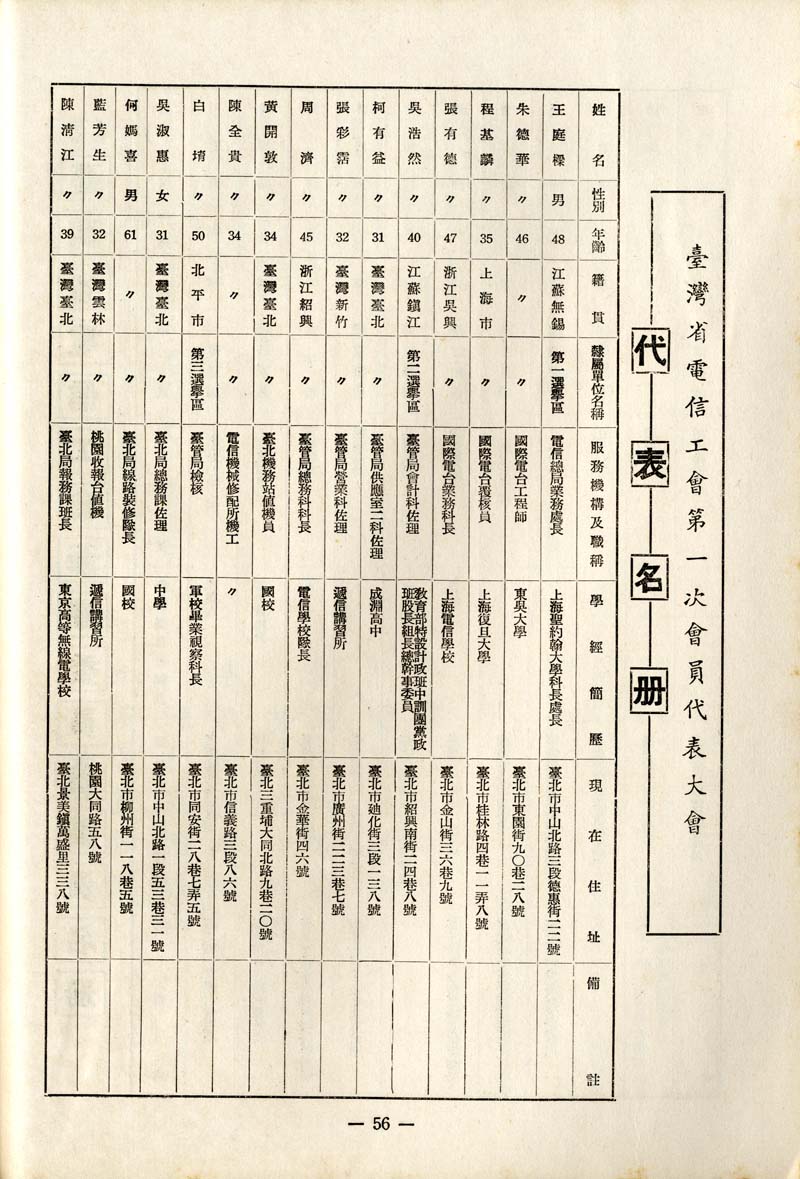 臺灣省電信工會第一次會員代表大會
代表名册
姓名 性別 年齡 籍貫 隸屬單位名稱 服務機構及職稱 學經簡歷 現在住址 備註
王庭樑 男 48 江蘇無錫 第一選舉區 電信總局業務處長 上海聖約翰大學科長處長 臺北市中山北路三段德惠街二二號
朱德華 〃 46 〃 〃 國際電台工程師 東吳大學 臺北市東園街九〇巷二八號
程基麟 〃 35 上海市 〃 國際電台覆核員 上海復旦大學 臺北市桂林路四巷一一弄八號
張有德 〃 47 浙江吳興 〃 國際電台業務科長 上海電信學校 臺北市金山街三六巷九號
吳浩然 〃 40 江蘇鎮江 第二選舉區 臺管局會計科佐理 教育部特設計政班中訓團黨政班股長組長總幹事委員 臺北市紹興南街二四巷八號
柯有益 〃 31 臺灣臺北 〃 臺管局供應室二科佐理 成淵高中 臺北市廸化街三段一三八號
張彩霑 〃 32 臺灣新竹 〃 臺管局營業科佐理 遞信講習所 臺北市廣州街二二三巷七號
周濟 〃 45 浙江紹興 〃 臺管局總務科科長 電信學校隊長 臺北市金華街四六號
黃開敦 〃 34 臺灣臺北 〃 臺北機務站值機員 國校 臺北三重埔大同北路九巷二〇號
陳全貴 〃 34 〃 〃 電信機械修配所機工 〃 臺北市信義路三段八六號
白堉 〃 50 北平市 第三選舉區 臺管局檢核 軍校畢業視察科長 臺北市同安街二八巷七弄五號
吳淑惠 女 31 臺灣臺北 〃 臺北局總務課佐理 中學 臺北市中山北路一段五三巷三一號
何媽喜 男 61 〃 〃 臺北局線路裝修隊長 國校 臺北市柳州街一一八巷五號
藍芳生 〃 32 臺灣雲林 〃 桃園收報台值機 遞信講習所 桃園大同路五八號
陳清江 〃 39 臺灣臺北 〃 臺北局報務課班長 東京高等無線電學校 臺北景美鎮萬盛里三三八號
— 56 —